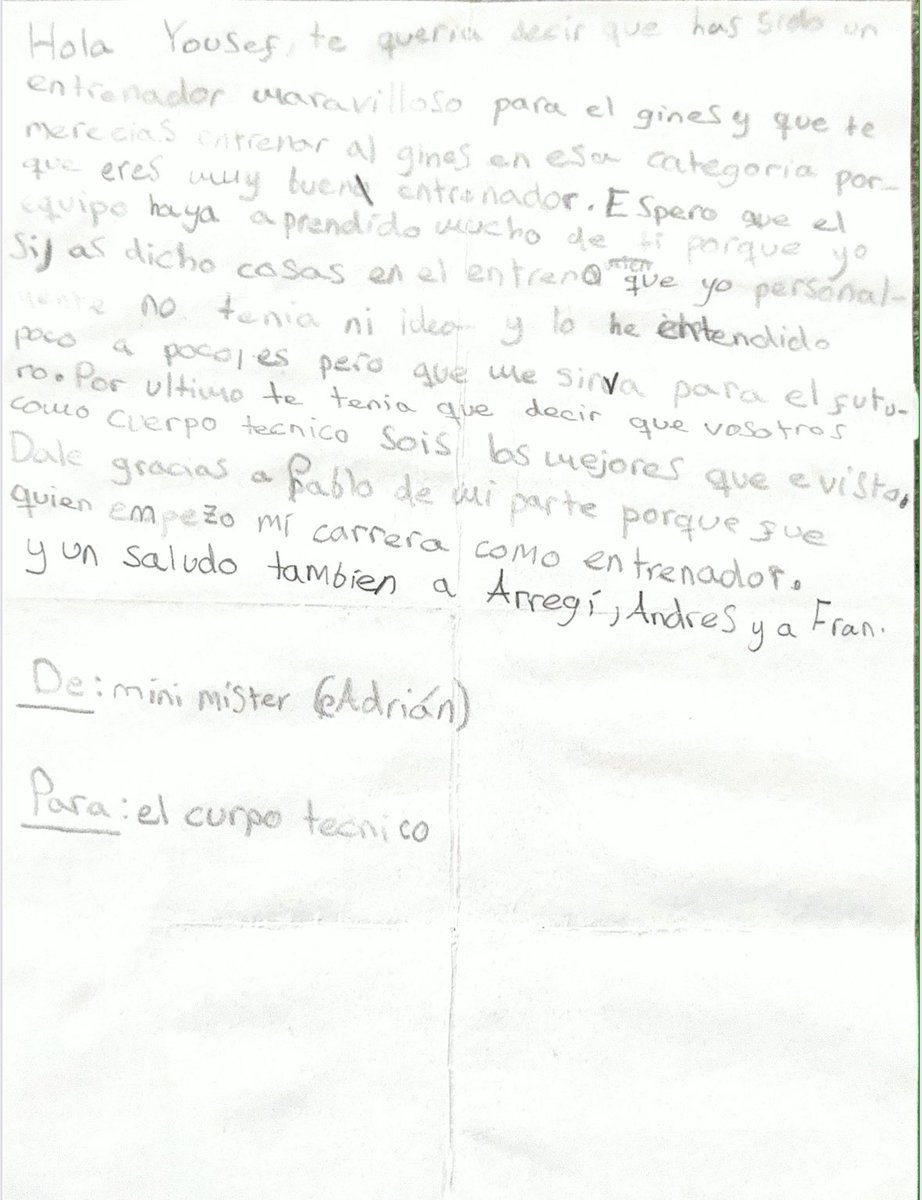 Hola Yousef, te queria decir que has sido un
entrenador maravilloso para el gines y que te
merecias entrenar al gines en esa categoria por-
que eres muy buen entrenador. Espero que el
equipo haya aprendido mucho de ti porque yo
si, as dicho cosas en el entreno que yo personal-
mente no tenia ni idea y lo he entendido
poco a poco, es pero que me sirva para el futu-
ro. Por ultimo te tenia que decir que vosotros
como cuerpo tecnico sois los mejores que e visto.
Dale gracias a Pablo de mi parte porque fue
quien empezo mi carrera como entrenador.
y un saludo tambien a Arregí, Andres y a Fran.
De: mini mister (Adrián)
Para: el curpo tecnico